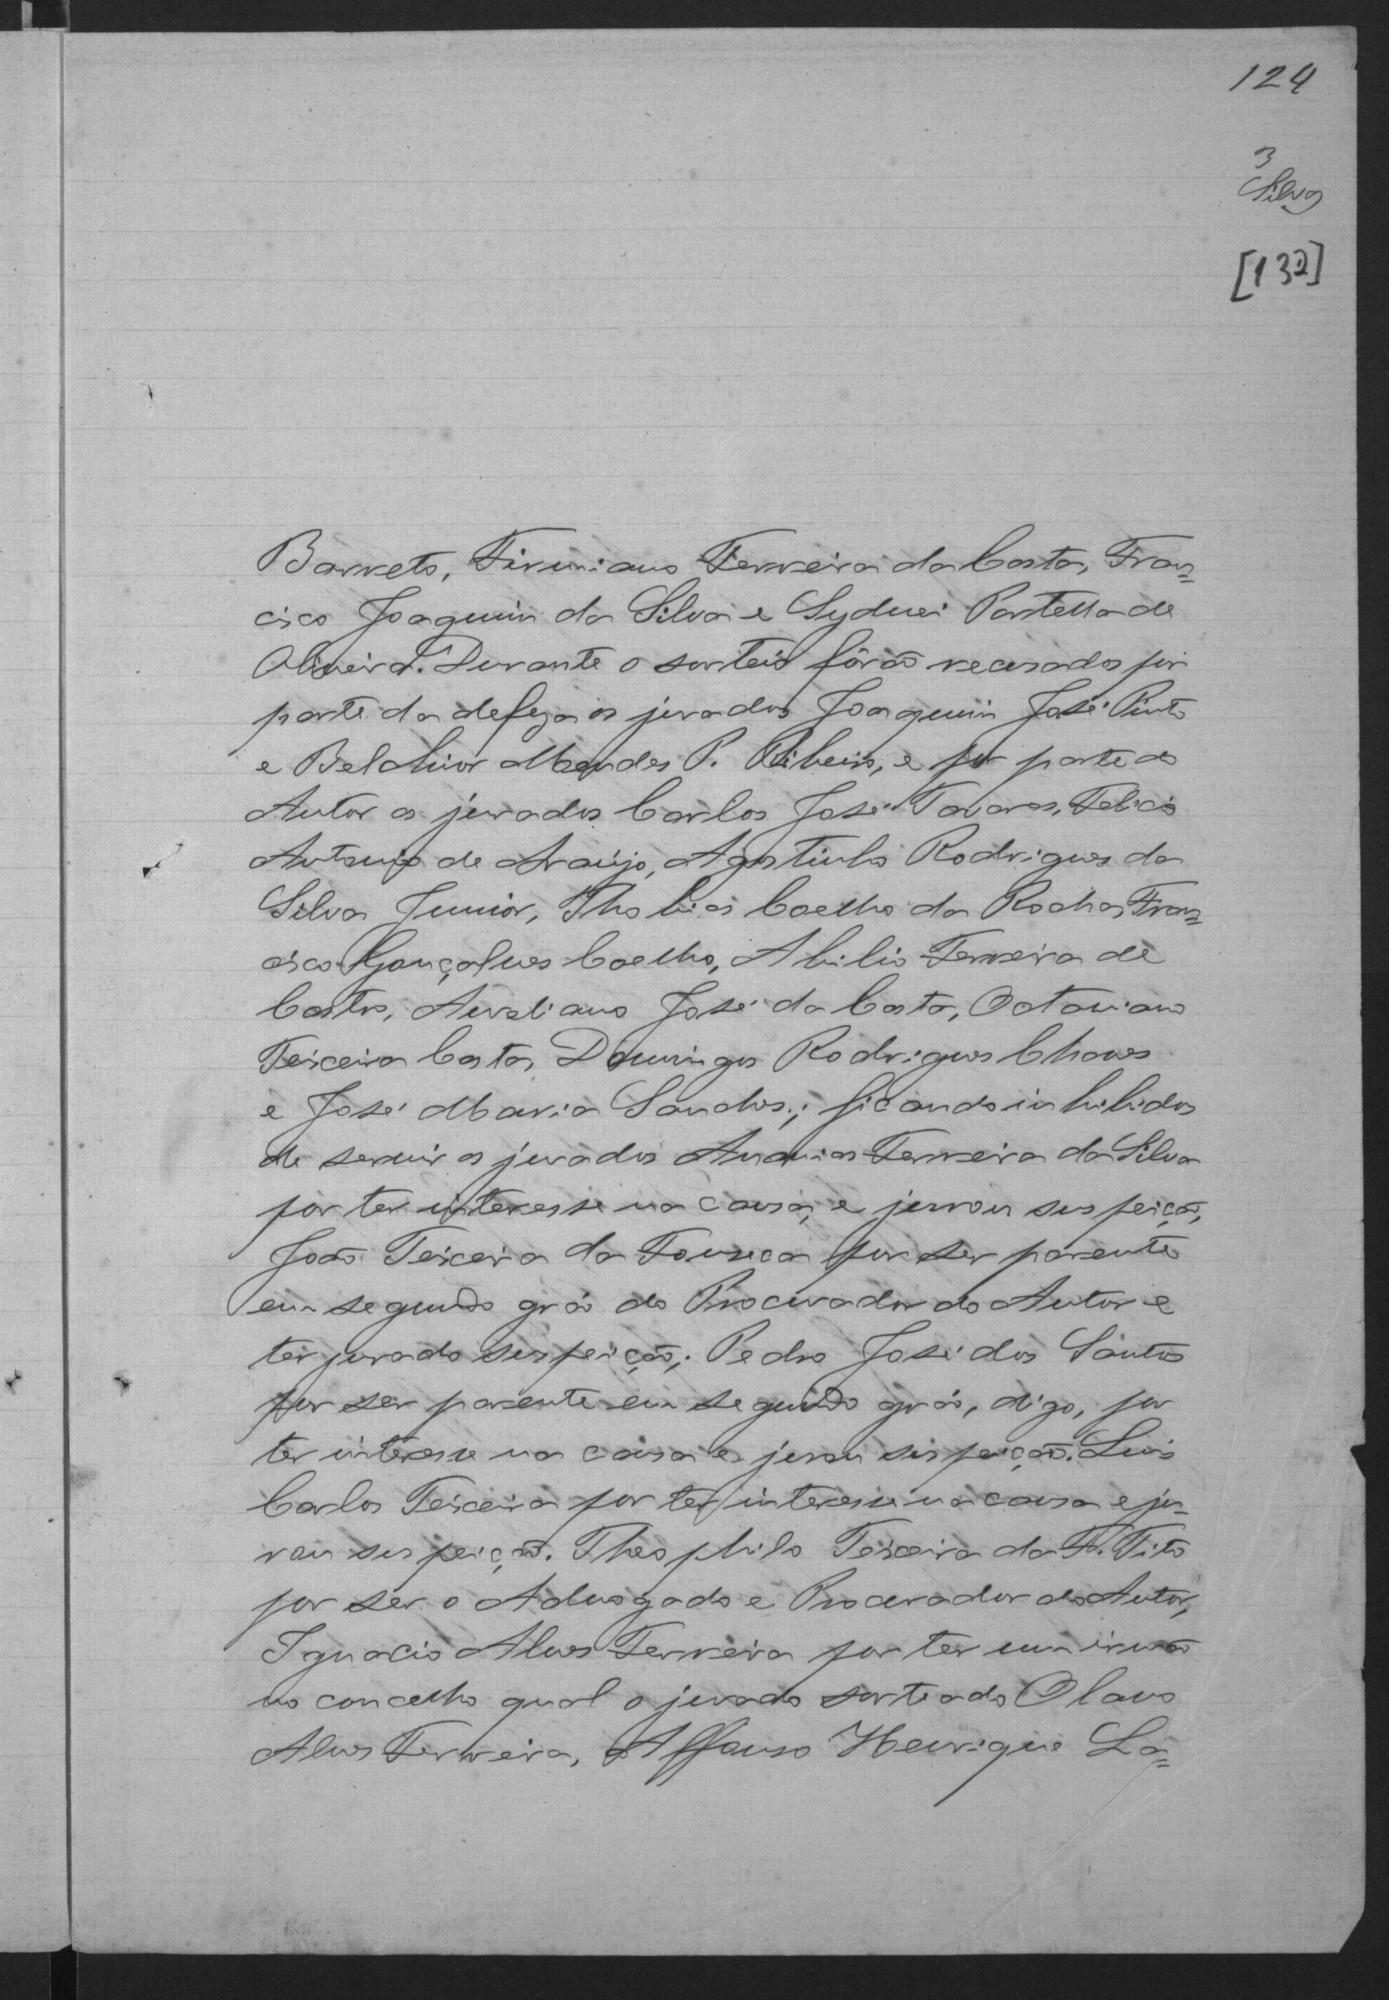 124
3
Silva
[132]
Barreto, Firmiano Ferreira da Costa, Fran=
cisco Joaquim da Silva e Sydnei Portella de
Oliveira. Durante o sorteio fôrão recusados por
parte da defeza os jurados Joaquim José Pinto
e Belchior Mendes P. Ribeiro, e por parte do
Autor os jurados Carlos José Tavares, Felicio
Antonio de Araújo, Agostinho Rodrigues da
Silva Junior, Thobias Coelho da Rocha, Fran=
cisco Gonçalves Coelho, Abilio Ferreira de
Castro, Aureliano José da Costa, Octaviano
Teixeira Costa, Domingos Rodrigues Chaves
e José Maria Sanches; ficando inhibidos
de servir os jurados Ananias Ferreira da Silva
por ter interesse na causa, e jurou suspeição,
João Teixeira da Fonseca por ser parente
em segundo gráo do Procurador do Autor e
ter jurado suspeição; Pedro José dos Santos
por ser parente em segundo gráo, digo, por
ter interesse na causa e jurou suspeição. Luis
Carlos Teixeira por ter interesse na causa e ju=
rou suspeição. Theophilo Teixeira da F. Tito
por ser o Advogado e Procurador do Autor,
Ignacio Alves Ferreira por ter um irmão
no concelho qual o jurado sorteado Olavo
Alves Ferreira, Affonso Henrique La=